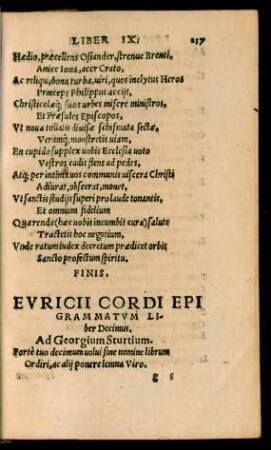 LIBER IX. 237
Hædio, præcellens Osiander, strenue Brenti,
Amice Iona, acer Crato,
Ac reliqui, bona turba, uiri, quos inclytus Heros
Præceps Philippus acciit,
Christicolæq́; suos urbes misere ministros,
Et Præsules Episcopos,
Vt noua tollatis diuisæ schismata sectæ,
Verimq́; monstretis uiam,
En cupido supplex uobis Ecclesia uoto
Vestros cadit flens ad pedes,
Atq́; per intimi uos communis uiscera Christi
Adiurat, obsecrat, monet,
Vt sanctis studijs superi pro laude tonantis,
Et omnium fidelium
Quærenda (hæc uobis incumbit cura) salute
Tractetis hoc negotium,
Vnde ratum iudex decretum prædicet orbis
Sancto profectum spiritu.
FINIS.
EVRICII CORDI EPI
GRAMMATVM LI-
ber Decimus.
Ad Georgium Sturtium.
Fortè tuo decimum uolui sine nomine librum
Ordiri, ac alij ponere lemna Viro.
g 5